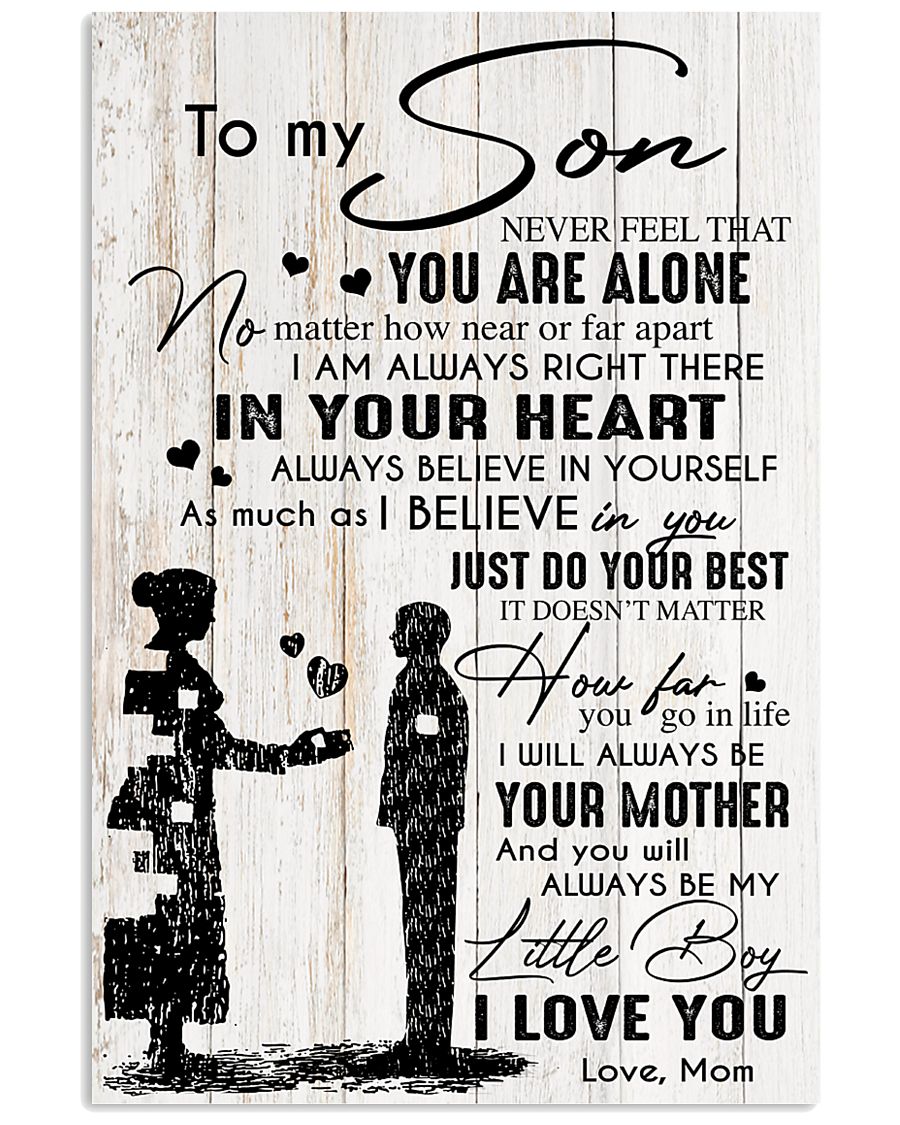 To my Son
NEVER FEEL THAT
YOU ARE ALONE
No matter how near or far apart
I AM ALWAYS RIGHT THERE
IN YOUR HEART
ALWAYS BELIEVE IN YOURSELF
As much as I BELIEVE in you
JUST DO YOUR BEST
IT DOESN'T MATTER
How far
you go in life
I WILL ALWAYS BE
YOUR MOTHER
And you will
ALWAYS BE MY
Little Boy
I LOVE YOU
Love, Mom